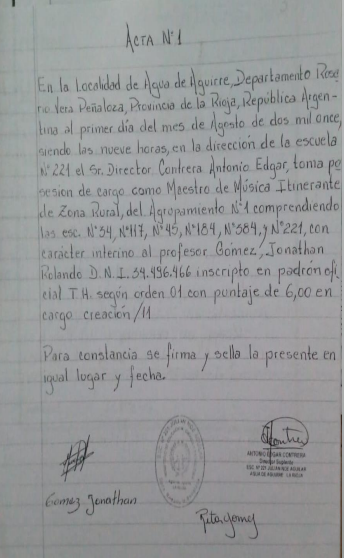 ACTA N°1
En la Localidad de Agua de Aguirre, Departamento Rosa
rio Vera Peñaloza, Provincia de la Rioja, República Argen-
tina al primer día del mes de Agosto de dos mil once,
siendo las nueve horas, en la dirección de la escuela
N°221 el Sr. Director Contrera Antonio Edgar, toma po
sesion de cargo como Maestro de Música Itinerante
de Zona Rural, del Agrupamiento N°1 comprendiendo
las esc. N°34, N°117, N°45, N°184, N°384, y N°221, con
carácter interino al profesor Gómez, Jonathan
Rolando D.N.I. 34.496.466 inscripto en padrón ofi
cial T.H. según orden 01 con puntaje de 6,00 en
cargo creación/11
Para constancia se firma y sella la presente en
igual lugar y fecha.
ANTONIO EDGAR CONTRERA
Director Suplente
ESC. N° 221
AGUA DE AGUIRRE - LA RIOJA
Gomez Jonathan
Rita Gomez